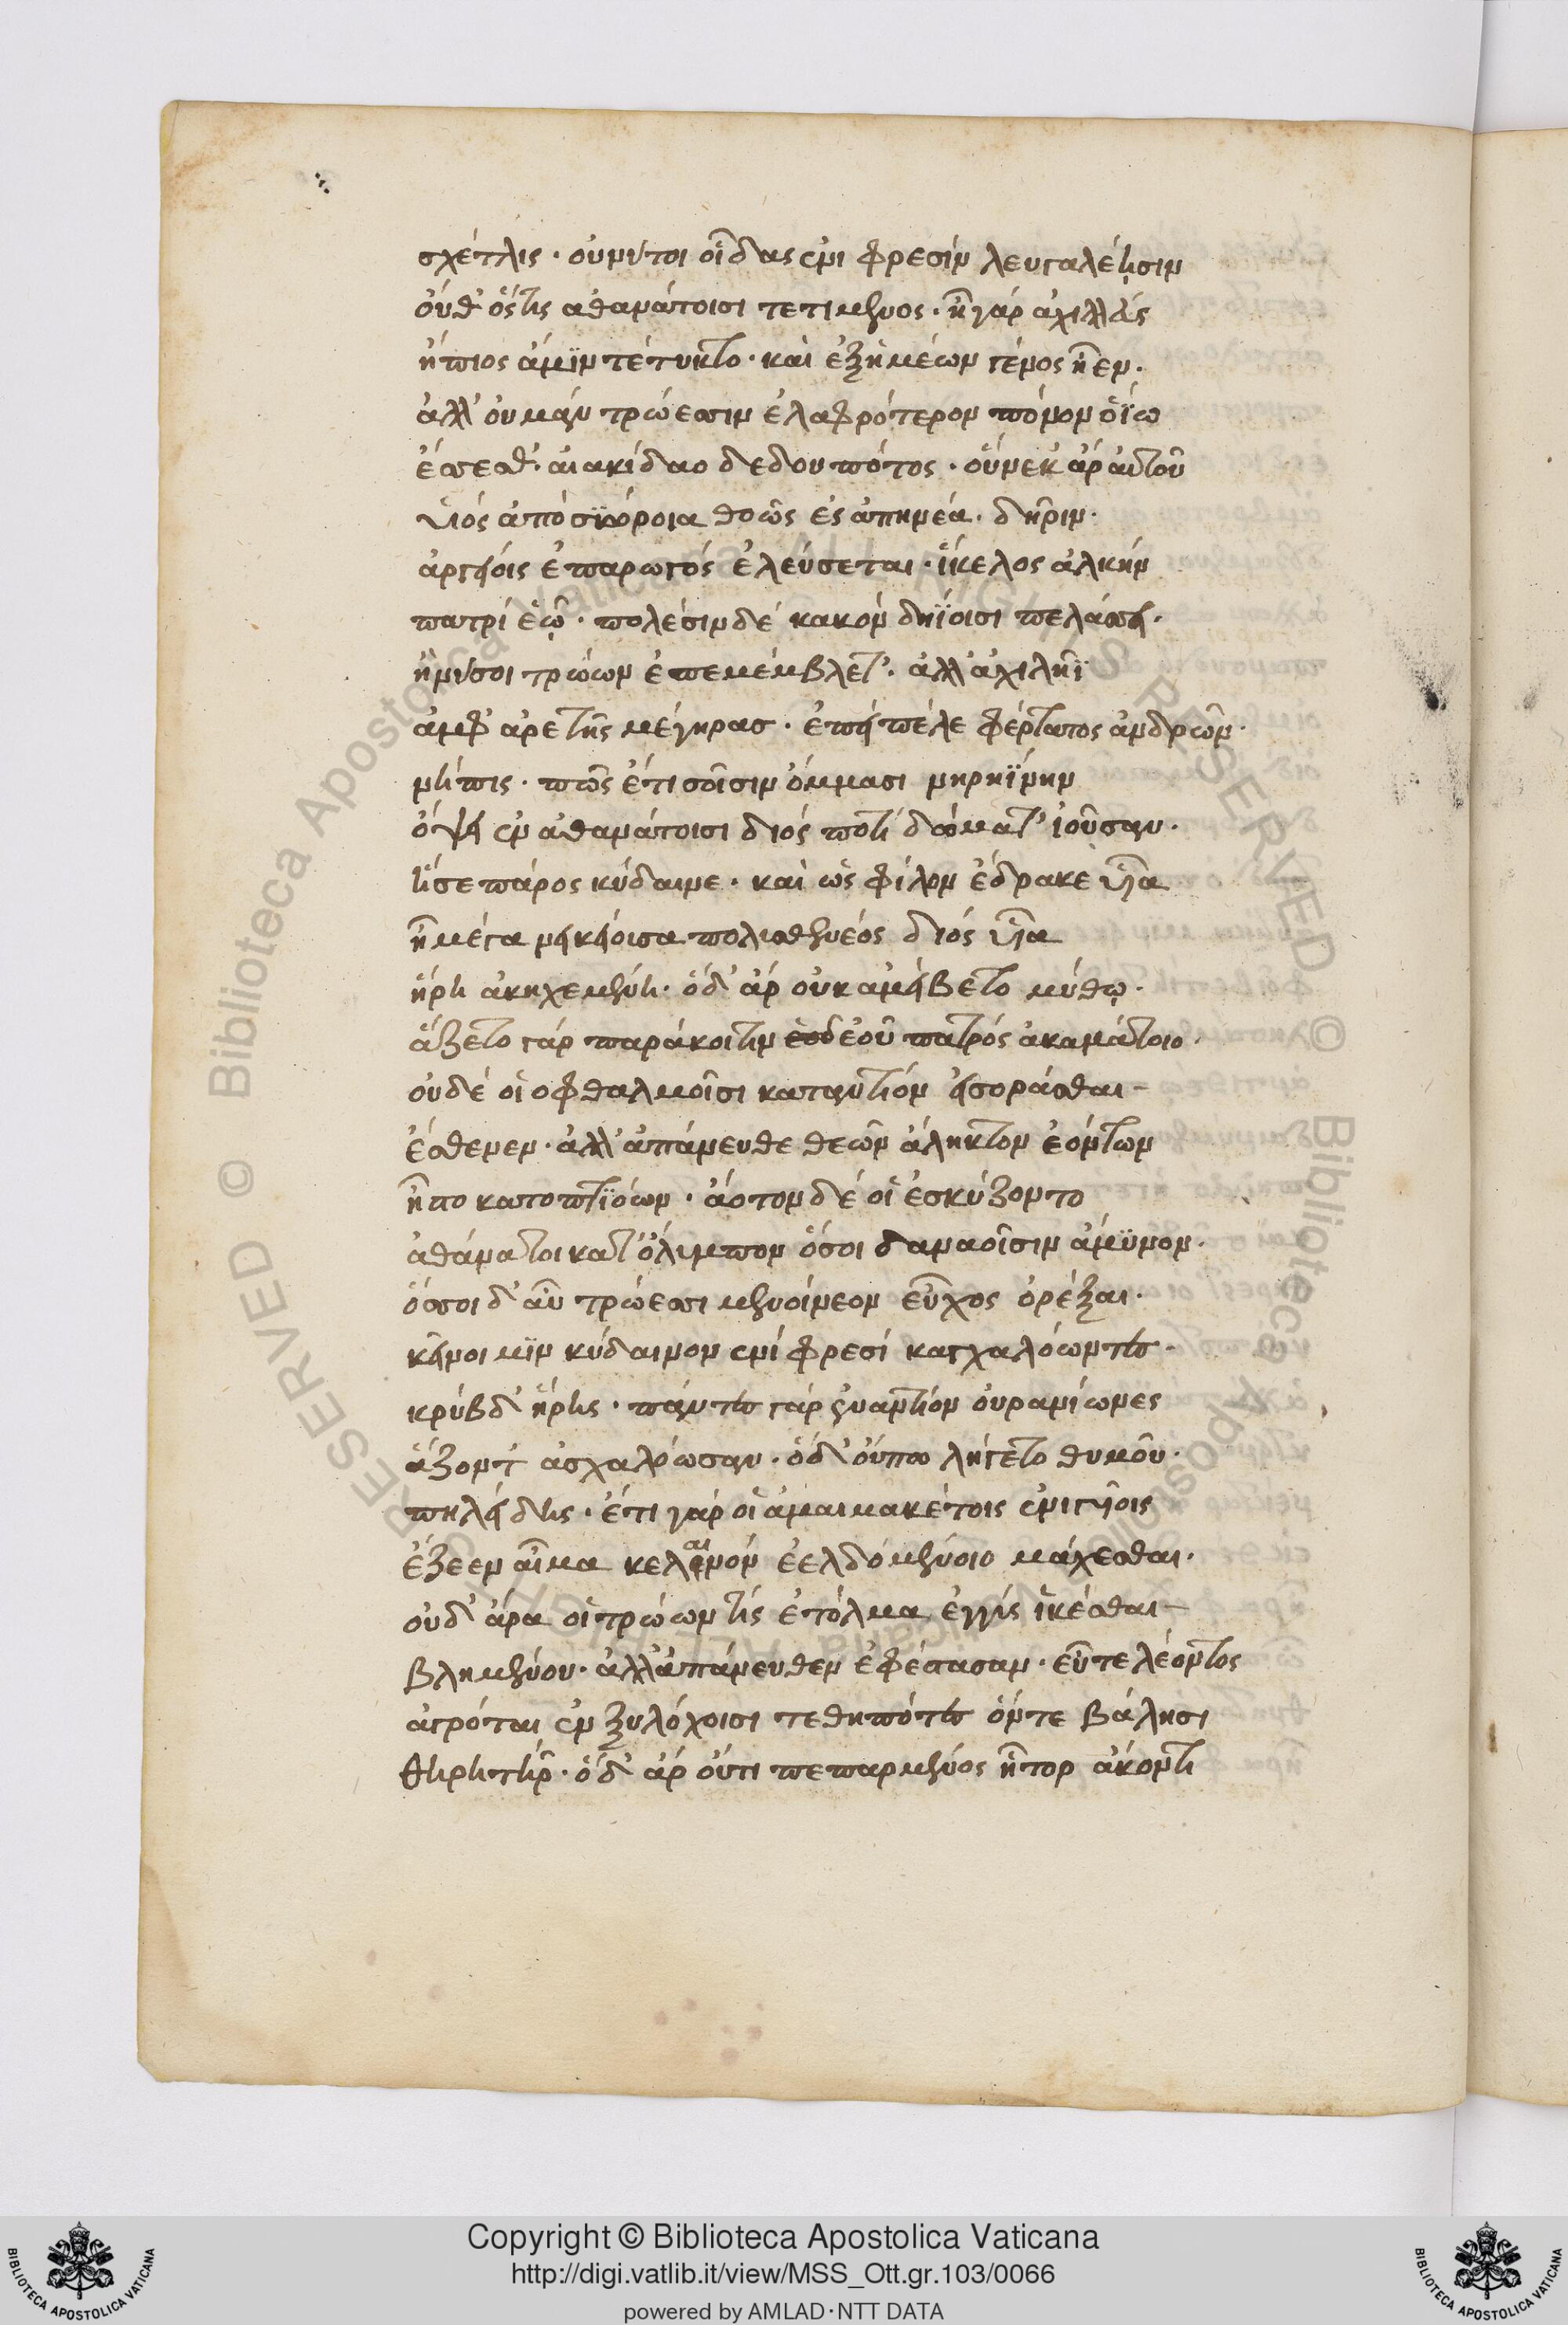 σχέτλιε· οὐ μέν τοι οἶδας ἐνι φρεσὶν λευγαλέῃσιν
οὔθ' ὅστις ἀθανάτοισι τετιμένος· ἦ γὰρ ἀχιλλεὺς
ἤπιος ἄμϊν τέτυκτο· καὶ ἐξ ἡμέων γένος ἦεν.
ἀλλ' οὐ μὰν τρώεσσιν ἐλαφρότερον πόνον ὀΐω
ἔσσεσθ' αἰακίδαο δεδουπότος· οὕνεκ' ἄρ αὐτοῦ
υἱὸς ἀπὸ σκύροιο θοῶς ἐς ἀπηνέα δῆριν.
ἀργείοις ἐπαρωγὸς ἐλεύσεται· ἴκελος ἀλκὴν
πατρὶ ἑῷ· πολέσιν δὲ κακὸν δηΐοισι πελάσσει.
ἦ νύ σοι τρώων ἐπεμέμβλετ'· ἀλλ' ἀχιλῆϊ
ἀμφ' ἀρετῆς μέγηρας· ἐπεὶ πέλε φέρτατος ἀνδρῶν.
νήπιε· πῶς ἔτι σοῖσιν ὄμμασι νηρηΐνην
ὄψει ἐν ἀθανάτοισι διὸς ποτὶ δώματ' ἰοῦσαν.
ἥ σε πάρος κύδαινε· καὶ ὡς φίλον ἔδρακε υἷα
ἦ μέγα νεικείουσα πολυσθενέος διὸς υἷα
ἥρη ἀκηχεμένη· ὁ δ' ἄρ οὐκ ἀμείβετο μύθῳ.
ἅζετο γὰρ παράκοιτιν ἑοῦ πατρὸς ἀκαμάτοιο.
οὐδέ οἱ ὀφθαλμοῖσι καταντίον εἰσοράασθαι
ἔσθενεν· ἀλλ' ἀπάνευθε θεῶν ἄληκτον ἐόντων
ἧστο κατοπτιόων· ἄοτον δέ οἱ ἐσκύζοντο
ἀθάνατοι κατ' ὄλυμπον ὅσοι δαναοῖσιν ἄμυνον.
ὅσσοι δ' αὖ τρώεσσι μενοίνεον εὖχος ὀρέξαι.
κεῖνοι μϊν κύδαινον ἐνὶ φρεσὶ καγχαλόωντες.
κρύβδ' ἥρης· πάντες γὰρ ἐναντίον οὐρανίωνες
ἅζοντ' ἀσχαλόωσαν· ὁ δ' οὔπω λήγετο θυμοῦ.
πηλείδης· ἔτι γάρ οἱ ἀμαιμακέτοις ἐνὶ γυίοις
ἔζεεν αἷμα κελαινὸν ἐελδομένοιο μάχεσθαι.
οὐδ' ἄρα οἱ τρώων τὶς ἐτόλμα ἐγγὺς ἱκέσθαι
βλημένου· ἀλλ' ἀπάνευθεν ἐφέστασαν· εὖτε λέοντος
ἀγρόται ἐν ξυλόχοισι τεθηπότες ὅντε βάλησι
θηρητήρ· ὁ δ' ἄρ οὔτι πεπαρμένος ἦτορ ἄκοντι
Copyright © Biblioteca Apostolica Vaticana
http://digi.vatlib.it/view/MSS_Ott.gr.103/0066
powered by AMLAD·NTT DATA